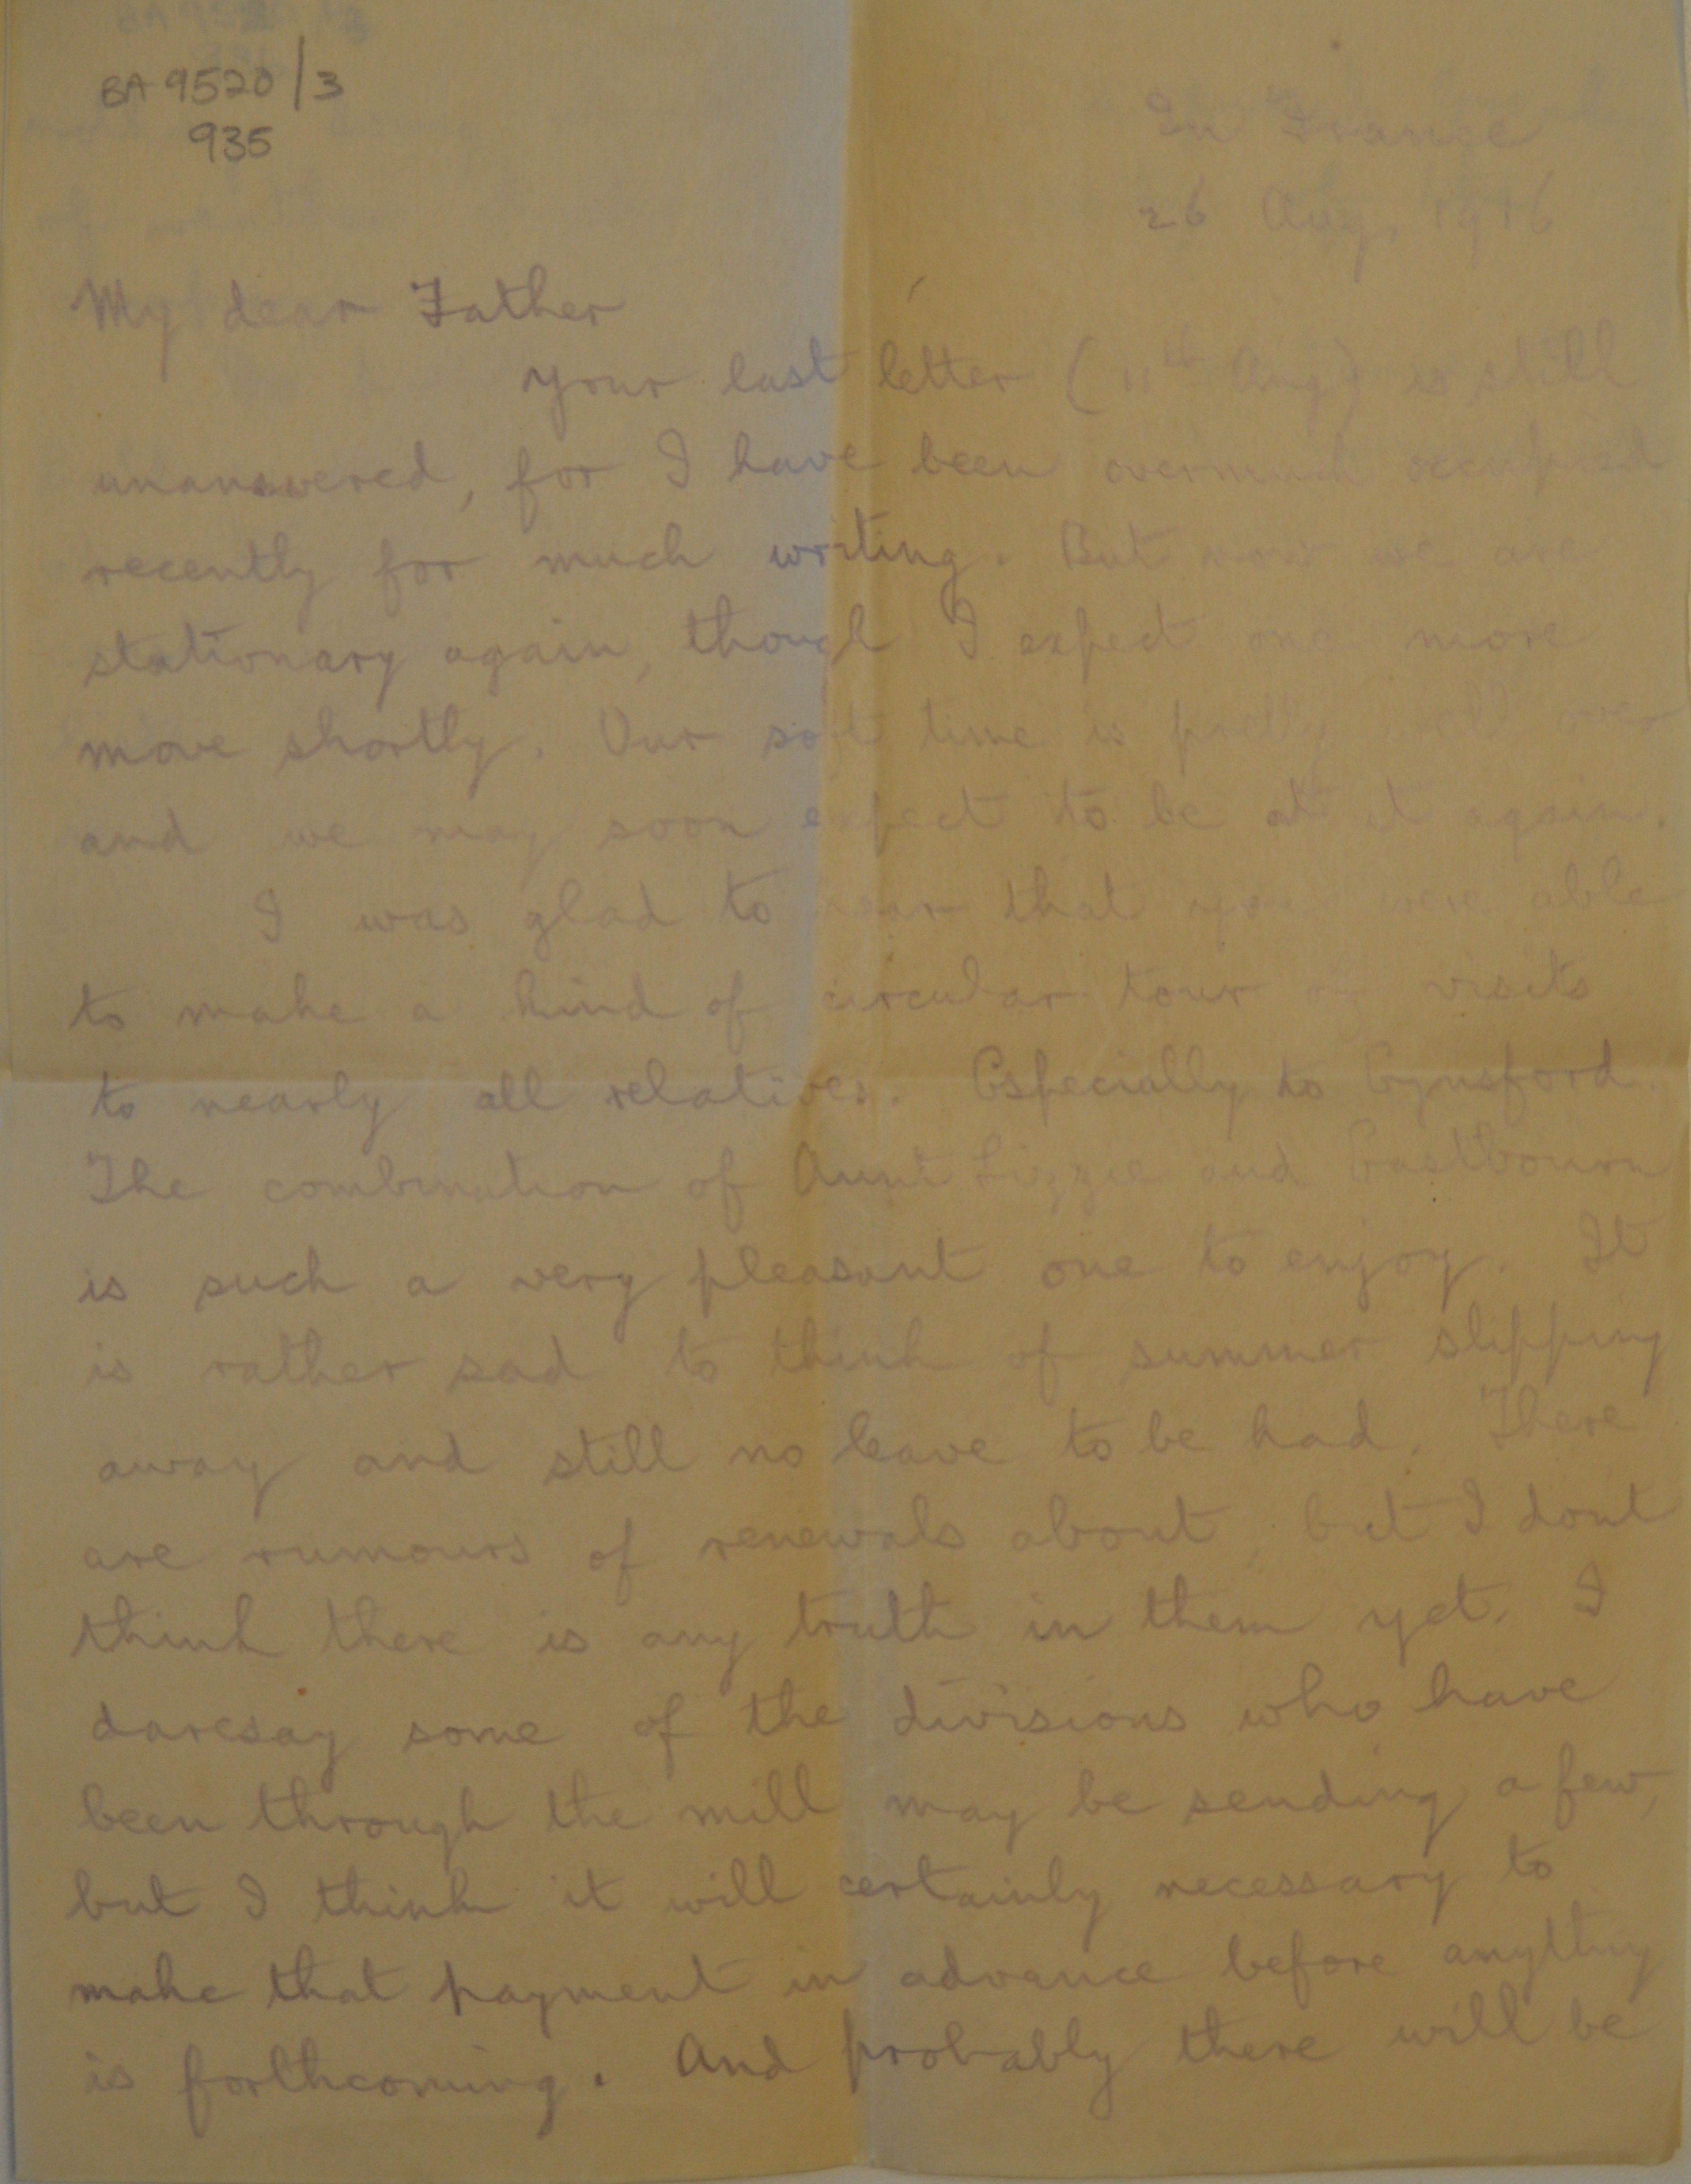 BA 9520/3
935
In France
26 Aug, 1916
My dear Father
Your last letter (11th Aug) is still
unanswered, for I have been overmuch occupied
recently for much writing. But now we are
stationary again, though I expect one more
move shortly. Our soft time is pretty well over
and we may soon expect to be at it again.
I was glad to hear that you were able
to make a kind of circular tour of visits
to nearly all relatives. Especially to Eynsford.
The combination of Aunt Lizzie and Eastbourn
is such a very pleasant one to enjoy. It
is rather sad to think of summer slipping
away and still no leave to be had. There
are rumours of renewals about, but I dont
think there is any truth in them yet. I
daresay some of the divisions who have
been through the mill may be sending a few,
but I think it will certainly necessary to
make that payment in advance before anything
is forthcoming. And probably there will be